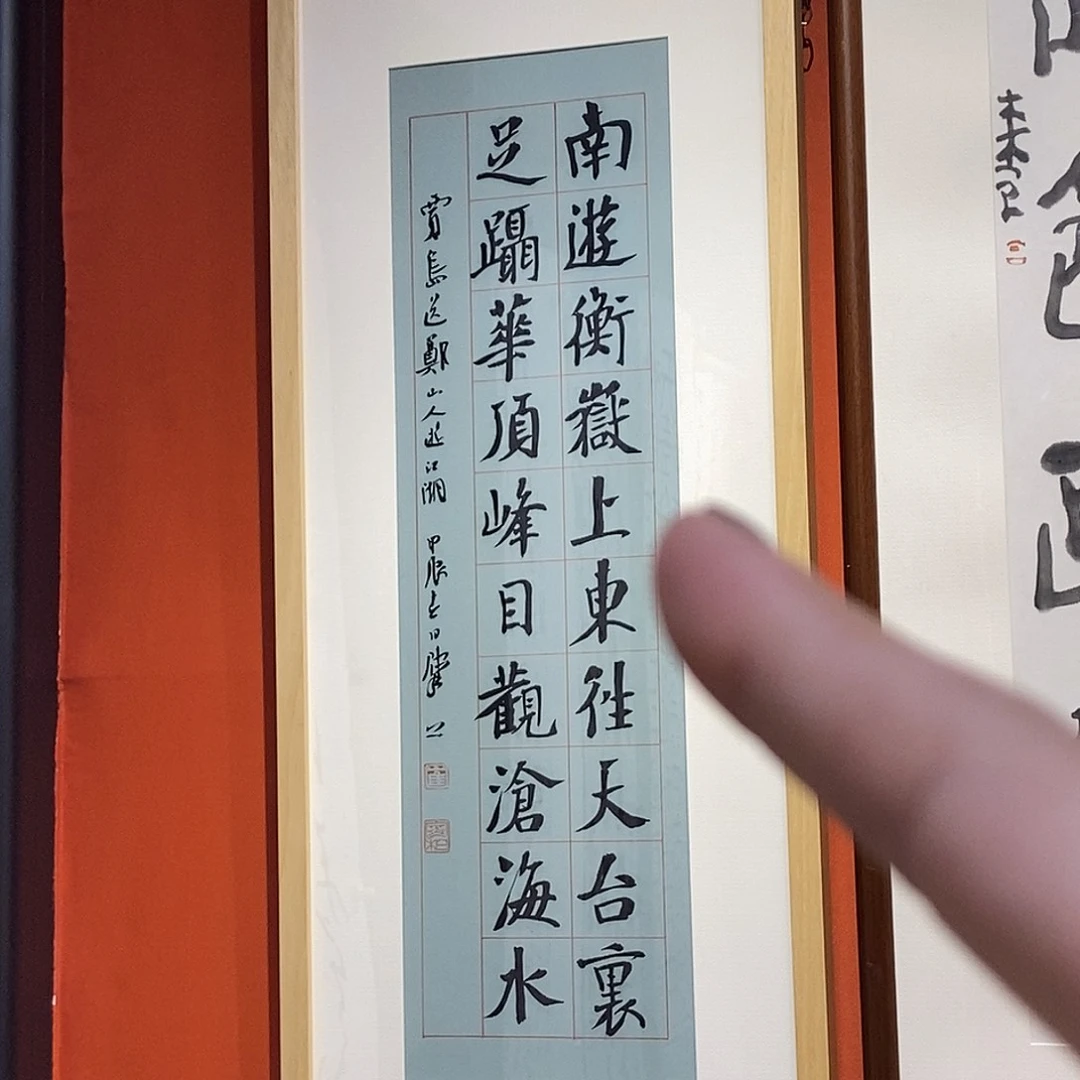 南遊衡嶽上東往天台裏
足躡華頂峰目觀滄海水
賈島送鄭山人遊江湖 甲辰